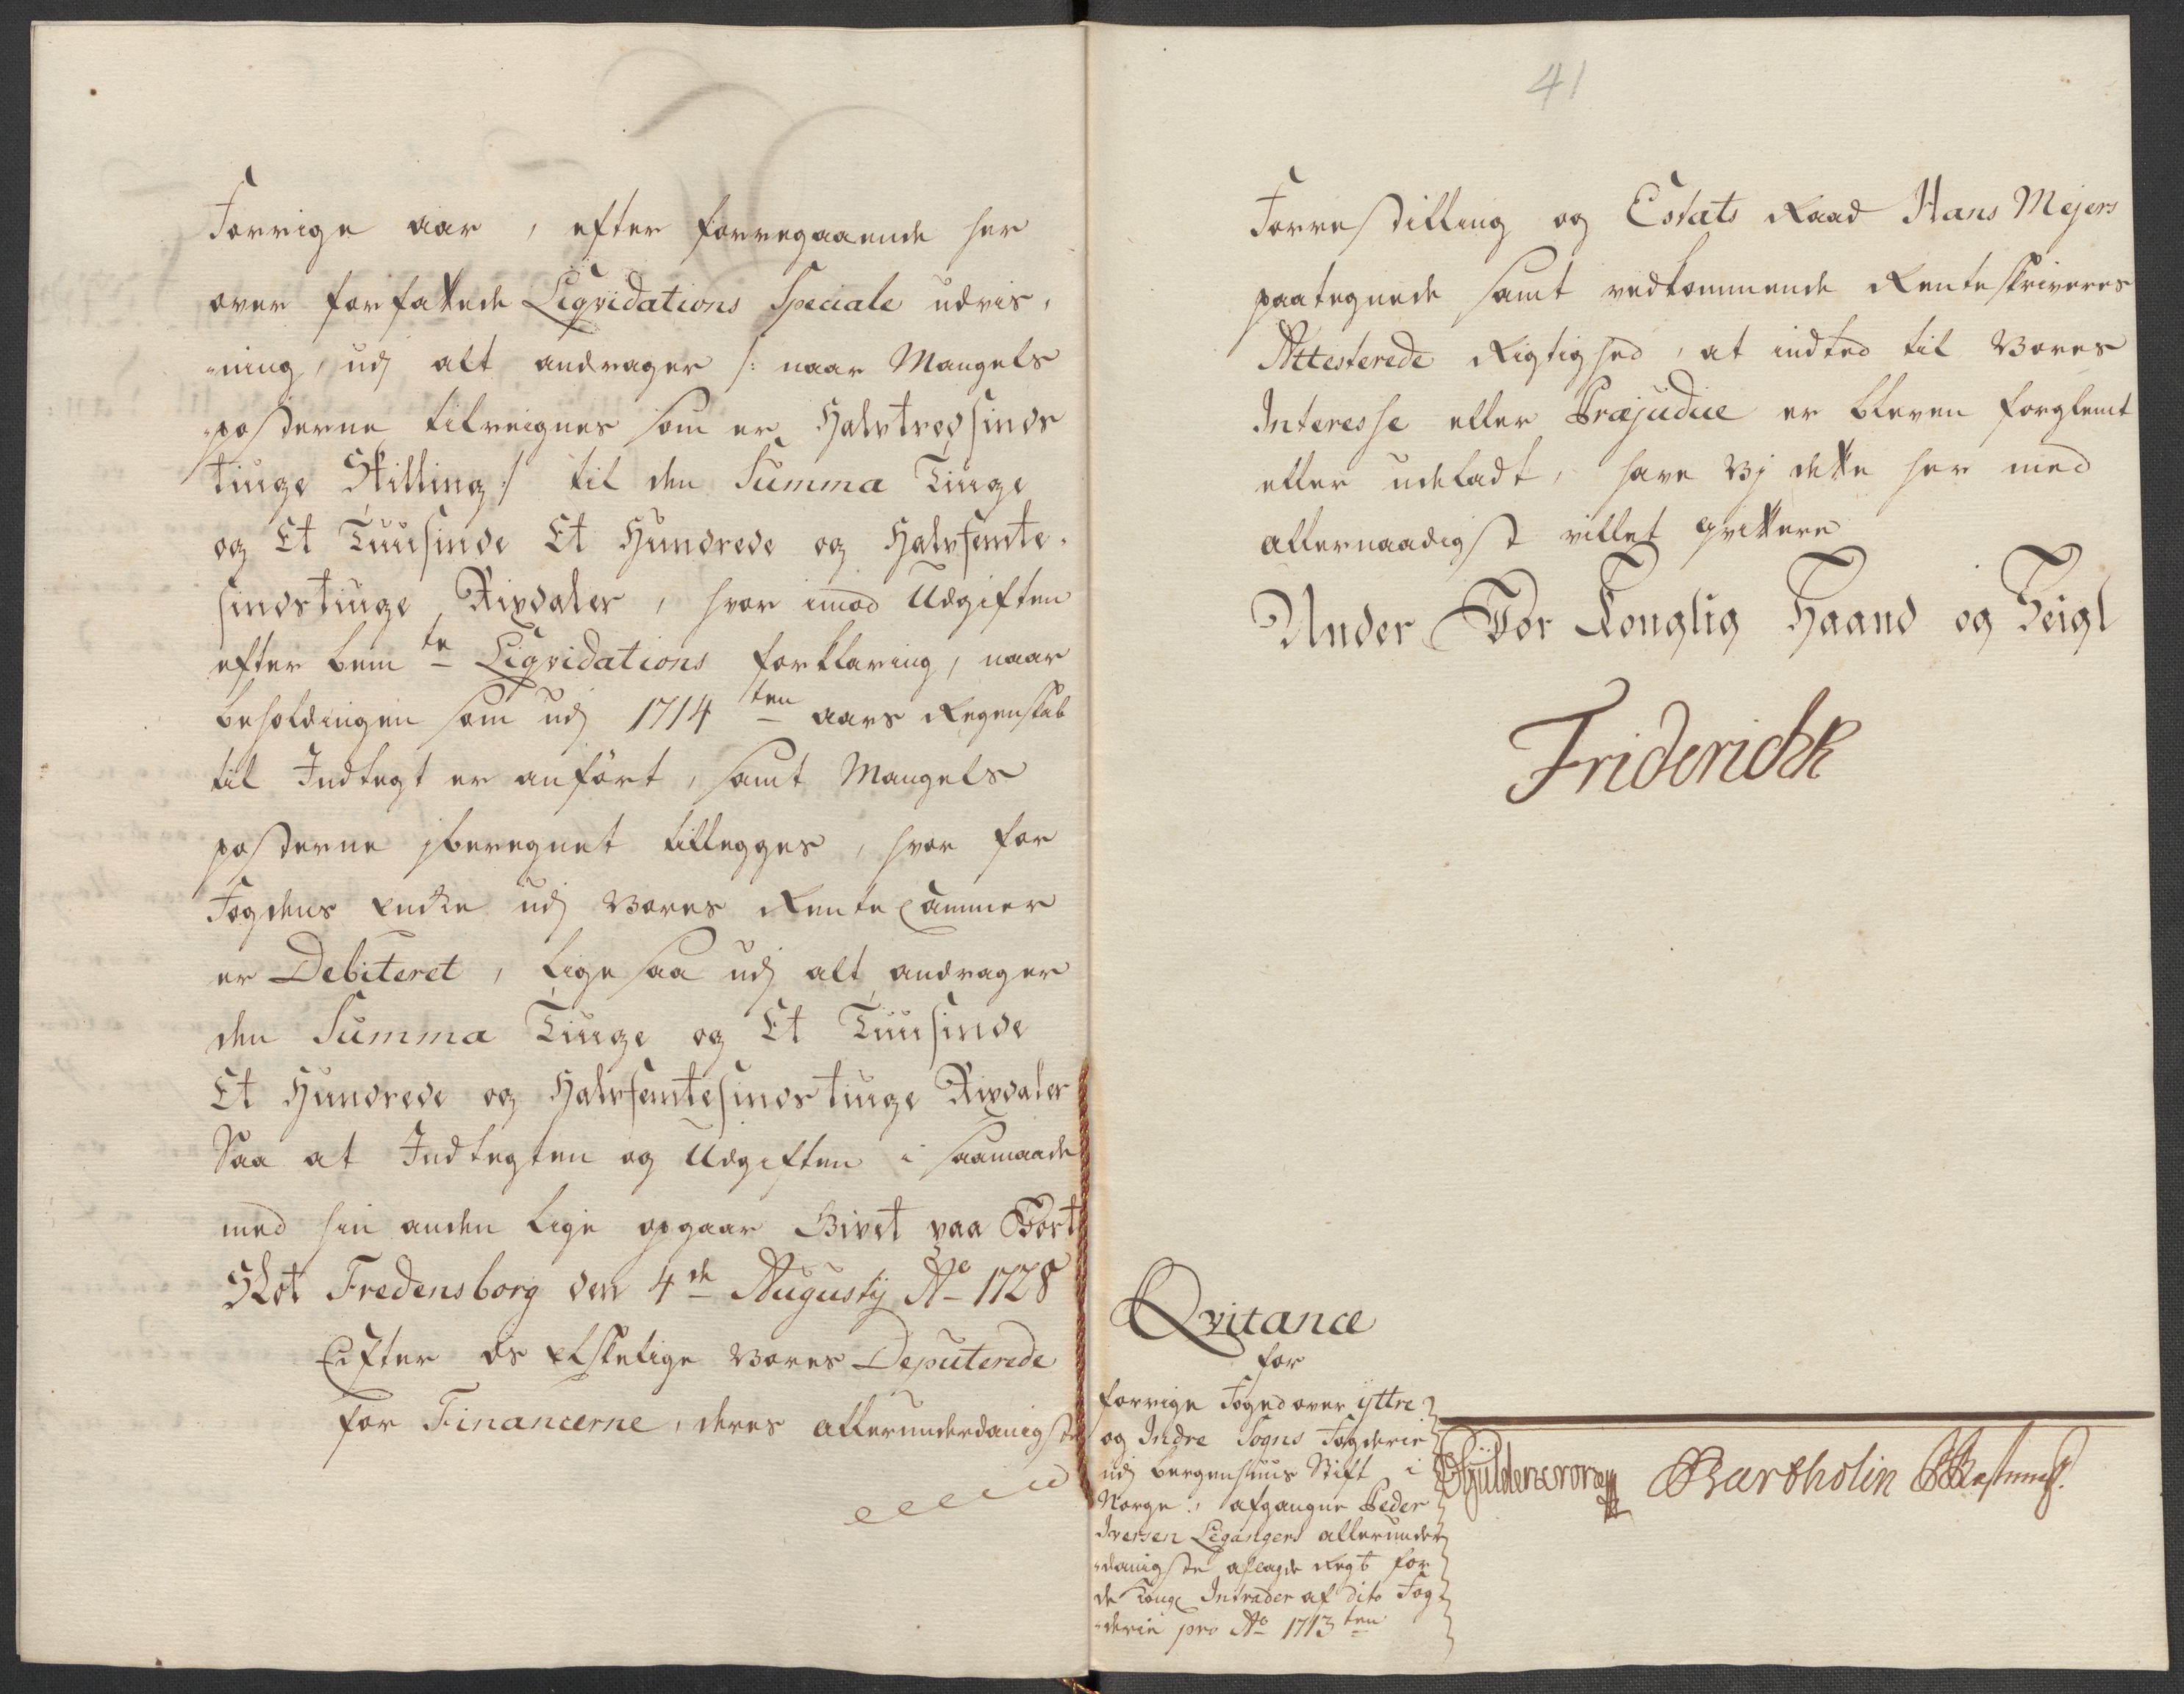 Forrige aar, efter foregaaende her
over forfattede Liqvidations Speciale udvis,
-ning, udj alt andrager /: naar Mangels
-posterne tilreignes som er Halvtredsinds
tiuge Skilling :/ til den Summa Tiuge
og Et Tuusinde Et Hundrede og Halvfemte-
sindstiuge Rixdaler, hvor imod Udgiften
efter bem te Liqvidations forklaring, naar
beholdingen som udj 1714 ten aars Regenskab
til Indtegt er anført, samt Mangels
posterne jberegnet tillegges, hvor for
Fogdens Encke udj Vores Rente Cammer
er Debiteret, lige saa udj alt andrager
den Summa Tiuge og Et Tuusinde
Et Hundrede og Halvfemtesindstiuge Rixdaler
Saa at Indtegten og Udgiften i saamaade
med hin anden lige opgaar Givet paa Vort
Slot Fredensborg den 4de Augustij Ao 1728
Efter os Elskelige Vores Deputerede
for Financerne, deres allerunderdanigste
41
Forrestilling og Estats Raad Hans Mejers
paategnede samt vedkommende Renteskriveres
Attesterede Rigtighed, at indted til Vores
Interesse eller Præjudice er bleven forglemt
eller udeladt, have Vj dette her med
allernaadigst villet qvittere
Under Vor Konglig Haand og Seigl
Friderich R
Qvitance
for
forrige Foged over yttre
og Indre Sogns Fogderie
udj Bergenhuus Stift i
Norge, afgangne Peder
Iversen Legangers allerunder
-danigste aflagde Regb for
de Kongl Intrader af dito Fog
-derie pro Ao 1713 ten
Gÿldencrone Bartholin